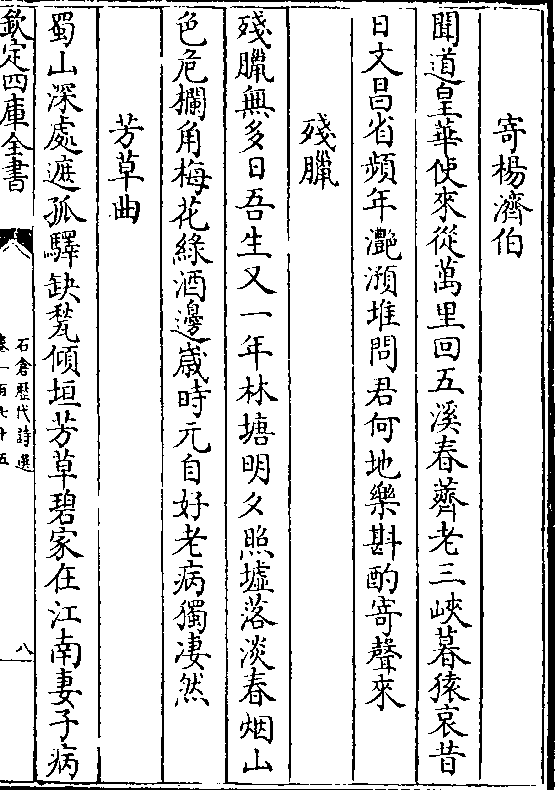 寄楊濟伯
聞道皇華使來從萬里回五溪春薺老三峽暮猿哀昔
日文昌省頻年灩澦堆問君何地樂斟酌寄聲來
殘臘
殘臘無多日吾生又一年林塘明夕照墟落淡春烟山
色危欄角梅花綠酒邊歲時元自好老病獨凄然
芳草曲
蜀山深處遮孤驛缺甃傾垣芳草碧家在江南妻子病
欽定四庫全書
石倉歷代詩選
卷一百七十五
八